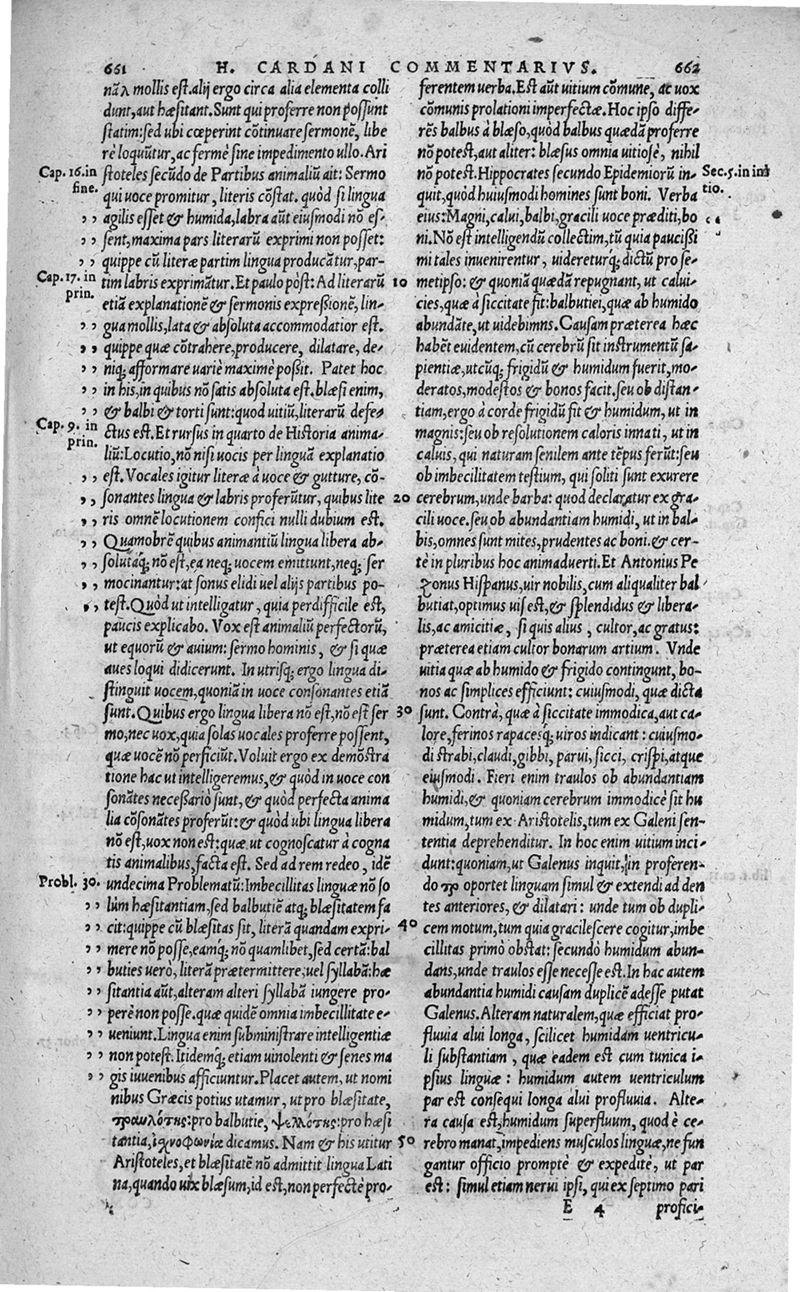 661 H. CARDANI COMMENTARIVS. 662
nãλ mollis est. alij ergo circa alia elementa colli
dunt, aut hæsitant. Sunt qui proferre non possunt
statim: sed ubi cœperint cõtinuare sermonẽ, libe
rè loquũtur, ac fermè sine impedimento ullo. Ari
Cap. 16. in fine.
stoteles secũdo de Partibus animaliũ ait: Sermo
qui uoce promitur, literis cõstat. quòd si lingua
,, agilis esset & humida, labra aũt eiusmodi nõ es-
,, sent, maxima pars literarũ exprimi non posset:
,, quippe cũ literæ partim lingua producãtur, par-
Cap. 17. in prin.
tim labris exprimãtur. Et paulo pòst: Ad literarũ 10
etiã explanationẽ & sermonis expreßionẽ, lin-
,, gua mollis, lata & absoluta accommodatior est.
,, quippe quæ cõtrahere, producere, dilatare, de-
,, niq; afformare uariè maximè poßit. Patet hoc
,, in his, in quibus nõ satis absoluta est. blæsi enim,
,, & balbi & torti sunt: quod uitiũ, literarũ defe-
Cap. 9. in prin.
ctus est. Et rursus in quarto de Historia anima-
liũ: Locutio, nõ nisi uocis per linguã explanatio
,, est. Vocales igitur literæ à uoce & gutture, cõ-
,, sonantes lingua & labris proferũtur, quibus lite 20
,, ris omnẽ locutionem confici nulli dubium est.
,, Quamobrẽ quibus animantiũ lingua libera ab-
,, solutaq́; nõ est, ea neq; uocem emittunt, neq; ser
,, mocinantur: at sonus elidi uel alijs partibus po-
,, test. Quòd ut intelligatur, quia perdifficile est,
paucis explicabo. Vox est animaliũ perfectorũ,
ut equorũ & auium: sermo hominis, & si quæ
aues loqui didicerunt. In utrisq; ergo lingua di-
stinguit uocem, quoniã in uoce consonantes etiã
sunt. Quibus ergo lingua libera nõ est, nõ est ser 30
mo, nec uox, quia solas uocales proferre possent,
quæ uocẽ nõ perficiũt. Voluit ergo ex demõstra
tione hac ut intelligeremus, & quòd in uoce con
sonãtes neceßariò sunt, & quòd perfecta anima
lia cõsonãtes proferũt: & quòd ubi lingua libera
nõ est, uox non est: quæ ut cognoscatur à cogna
tis animalibus, facta est. Sed ad rem redeo, idẽ
Probl. 30.
undecima Problematũ: Imbecillitas linguæ nõ so
,, lùm hæsitantiam, sed balbutiẽ atq; blæsitatem fa
,, cit: quippe cũ blæsitas sit, literã quandam expri- 40
,, mere nõ posse, eamq́; nõ quamlibet, sed certã: bal
,, buties uerò, literã prætermittere, uel syllabã: hæ
,, sitantia aũt, alteram alteri syllabã iungere pro-
,, perè non posse. quæ quidẽ omnia imbecillitate e-
,, ueniunt. Lingua enim subministrare intelligentiæ
,, non potest. Itidemq́; etiam uinolenti & senes ma
,, gis iuuenibus afficiuntur. Placet autem, ut nomi
nibus Græcis potius utamur, ut pro blæsitate,
τραυλότης: pro balbutie, ψελλότης: pro hæsi
tantia, ἰχνοφωνία dicamus. Nam & his utitur 50
Aristoteles, et blæsitatẽ nõ admittit lingua Lati
na, quando uix blæsum, id est, non perfectè pro-
ferentem uerba. Est aũt uitium cõmune, ac uox
cõmunis prolationi imperfectæ. Hoc ipso diffe-
rẽs balbus à blæso, quòd balbus quædã proferre
nõ potest, aut aliter: blæsus omnia uitiosè, nihil
nõ potest. Hippocrates secundo Epidemiorũ in-
Sec. 5. in initio.
quit, quòd huiusmodi homines sunt boni. Verba
eius: Magni, calui, balbi, gracili uoce præditi, bo
ni. Nõ est intelligendũ collectim, tũ quia paucißi
mi tales inuenirentur, uidereturq́; dictũ pro se-
metipso: & quoniã quædã repugnant, ut calui-
cies, quæ à siccitate fit: balbutiei, quæ ab humido
abundãte, ut uidebimns. Causam præterea hæc
habẽt euidentem, cũ cerebrũ sit instrumentũ sa-
pientiæ, utcũq; frigidũ & humidum fuerit, mo-
deratos, modestos & bonos facit. seu ob distan-
tiam, ergo à corde frigidũ fit & humidum, ut in
magnis: seu ob resolutionem caloris innati, ut in
caluis, qui naturam senilem ante tẽpus ferũt: seu
ob imbecilitatem testium, qui soliti sunt exurere
cerebrum, unde barba: quod declaratur ex gra-
cili uoce. seu ob abundantiam humidi, ut in bal-
bis, omnes sunt mites, prudentes ac boni. & cer-
tè in pluribus hoc animaduerti. Et Antonius Pe
zonus Hispanus, uir nobilis, cum aliqualiter bal
butiat, optimus uir est, & splendidus & libera-
lis, ac amicitiæ, si quis alius, cultor, ac gratus:
præterea etiam cultor bonarum artium. Vnde
uitia quæ ab humido & frigido contingunt, bo-
nos ac simplices efficiunt: cuiusmodi, quæ dicta
sunt. Contrà, quæ à siccitate immodica, aut ca-
lore, ferinos rapacesq́; uiros indicant: cuiusmo-
di strabi, claudi, gibbi, parui, sicci, crispi, atque
eiusmodi. Fieri enim traulos ob abundantiam
humidi, & quoniam cerebrum immodicè sit hu
midum, tum ex Aristotelis, tum ex Galeni sen-
tentia deprehenditur. In hoc enim uitium inci-
dunt: quoniam, ut Galenus inquit, in proferen-
do τρ oportet linguam simul & extendi ad den
tes anteriores, & dilatari: unde tum ob dupli-
cem motum, tum quia gracilescere cogitur, imbe
cillitas primò obstat: secundò humidum abun-
dans, unde traulos esse necesse est. In hac autem
abundantia humidi causam duplicẽ adesse putat
Galenus. Alteram naturalem, quæ efficiat pro-
fluuia alui longa, scilicet humidam uentricu-
li substantiam, quæ eadem est cum tunica i-
psius linguæ: humidum autem uentriculum
par est consequi longa alui profluuia. Alte-
ra causa est, humidum superfluum, quod è ce-
rebro manat, impediens musculos linguæ, ne fun
gantur officio promptè & expeditè, ut par
est: simul etiam nerui ipsi, qui ex septimo pari
E 4 profici-